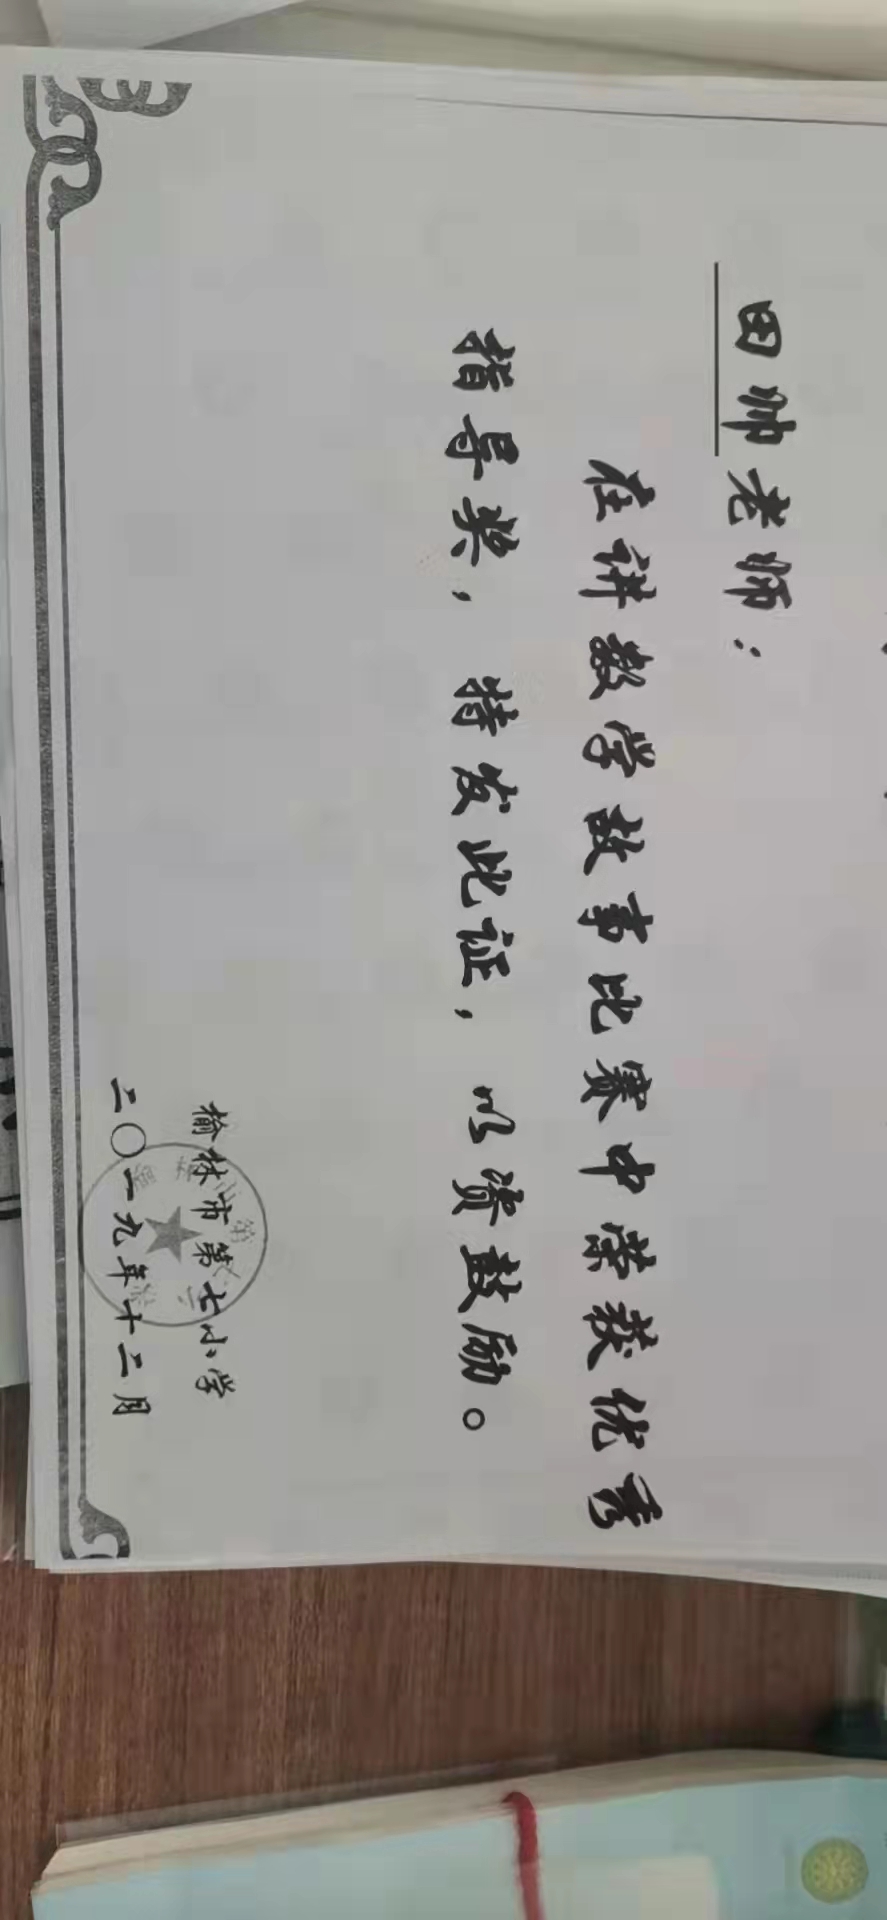 田帅老师：
在讲数学故事比赛中荣获优秀
指导奖，特发此证，以资鼓励。
榆林市第七小学
二〇一九年十二月